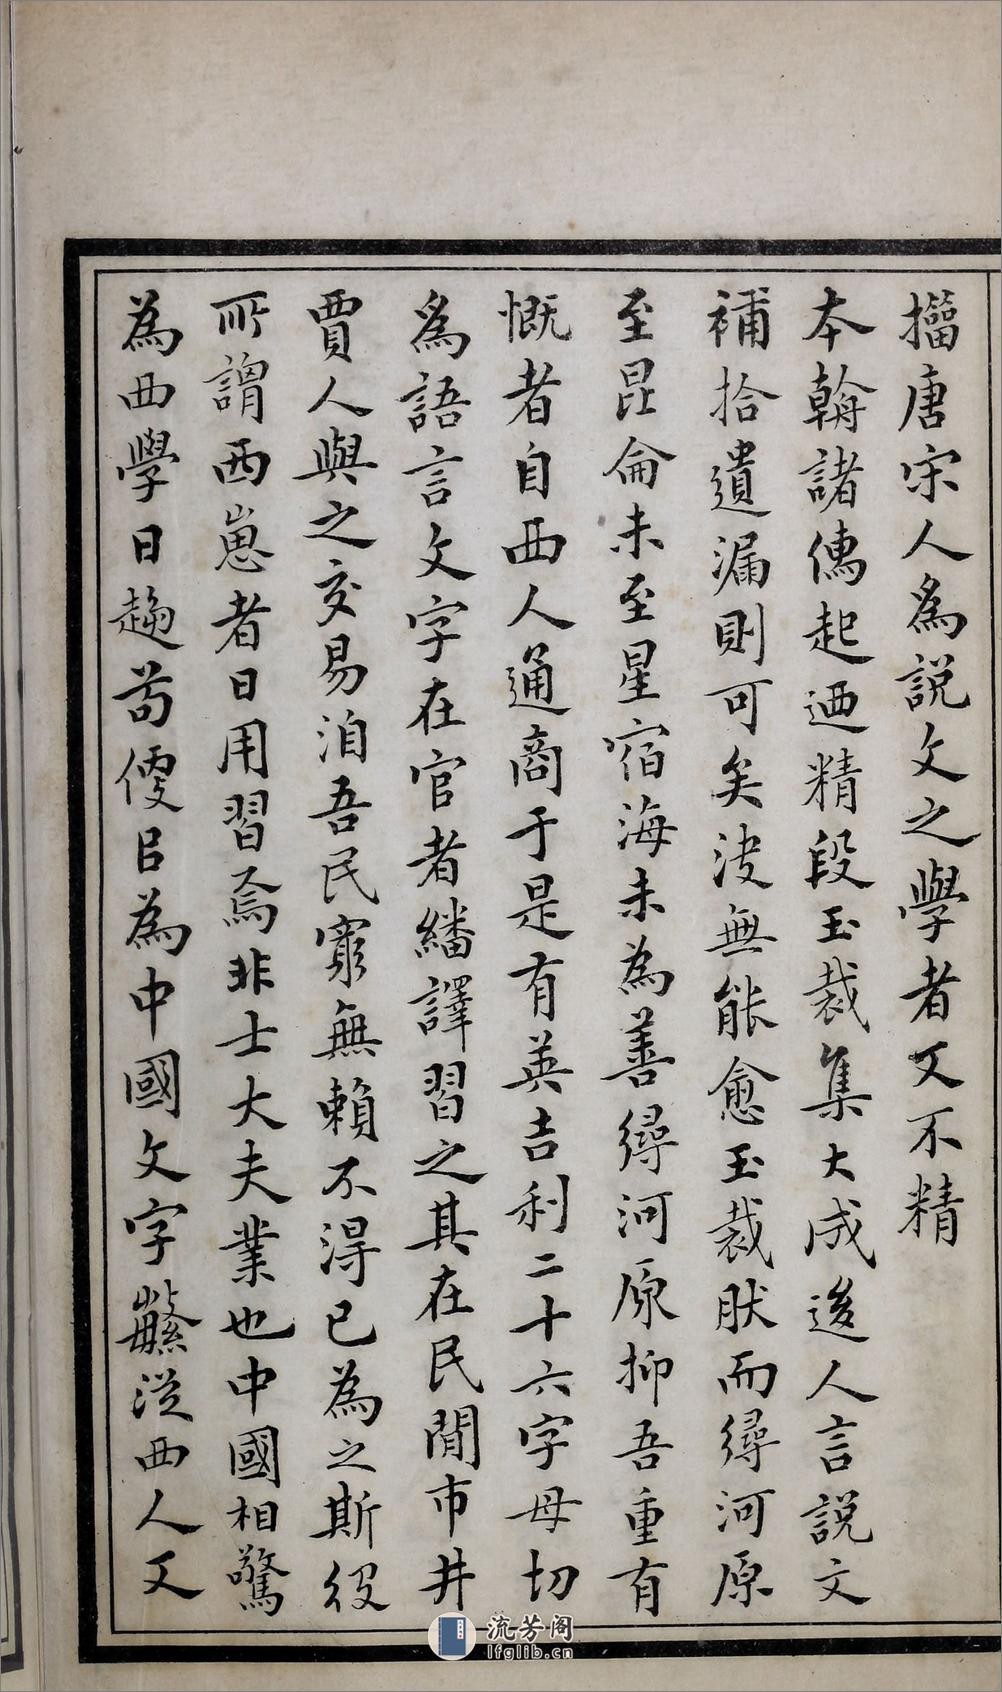 籀唐宋人爲說文之學者又不精
本朝諸儁起迺精段玉裁集大成後人言說文
補拾遺漏則可矣決無能愈玉裁肰而得河原
至昆侖未至星宿海未為善得河原抑吾重有
慨者自西人通商于是有英吉利二十六字母切
爲語言文字在官者繙譯習之其在民閒市井
賈人與之交易洎吾民窮無賴不得已為之斯役
所謂西崽者日用習焉非士大夫業也中國相驚
為西學日趨苟便㠯為中國文字繁從西人又
流芳阁
lfglib.cn